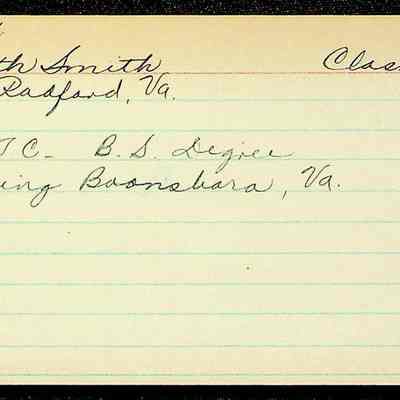 th Smith Clas
Radford, Va.
TC- B.S. Degree
ing Boonsboro, Va.